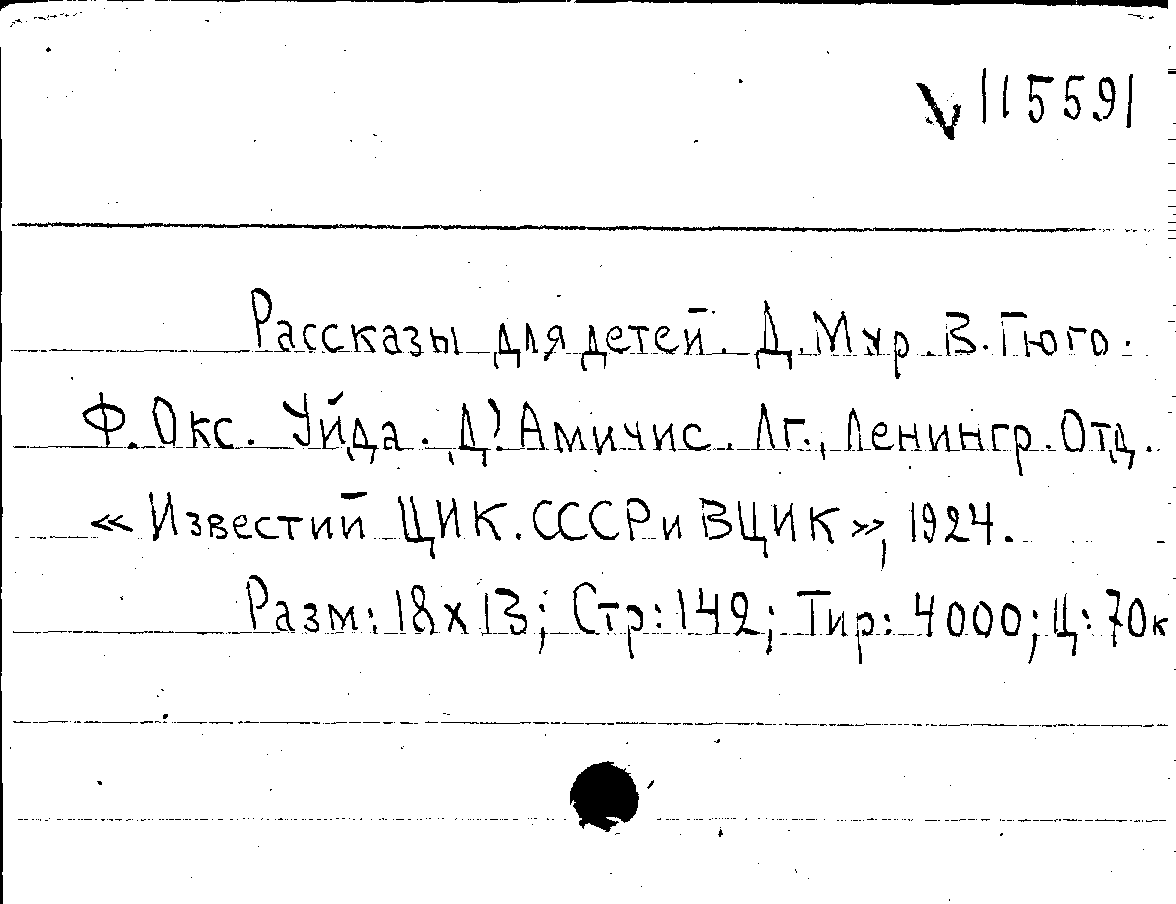 V 115591
Рассказы для детей. Д. Мур. В. Гюго.
Ф. Окс. Уйда. Д! Амичис. Лг., Ленингр. Отд.
«Известий ЦИК. СССР и ВЦИК», 1924.
Разм: 18х13; Стр: 142; Тир: 4000; Ц: 70к